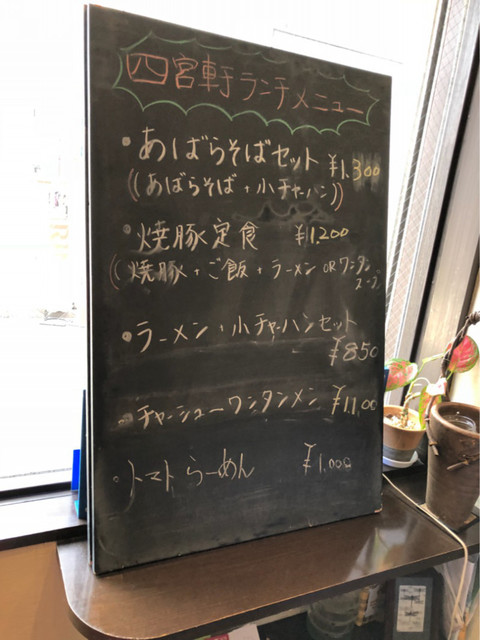 四宮軒ランチメニュー
・あばらそばセット ¥1,300
((あばらそば+小チャーハン))
・焼豚定食 ¥1,200
((焼豚+ご飯+ラーメン ORワンタン
スープ
・ラーメン・小チャーハンセット
¥850
・チャーシューワンタンメン ¥1,100
・トマトらーめん ¥1,000